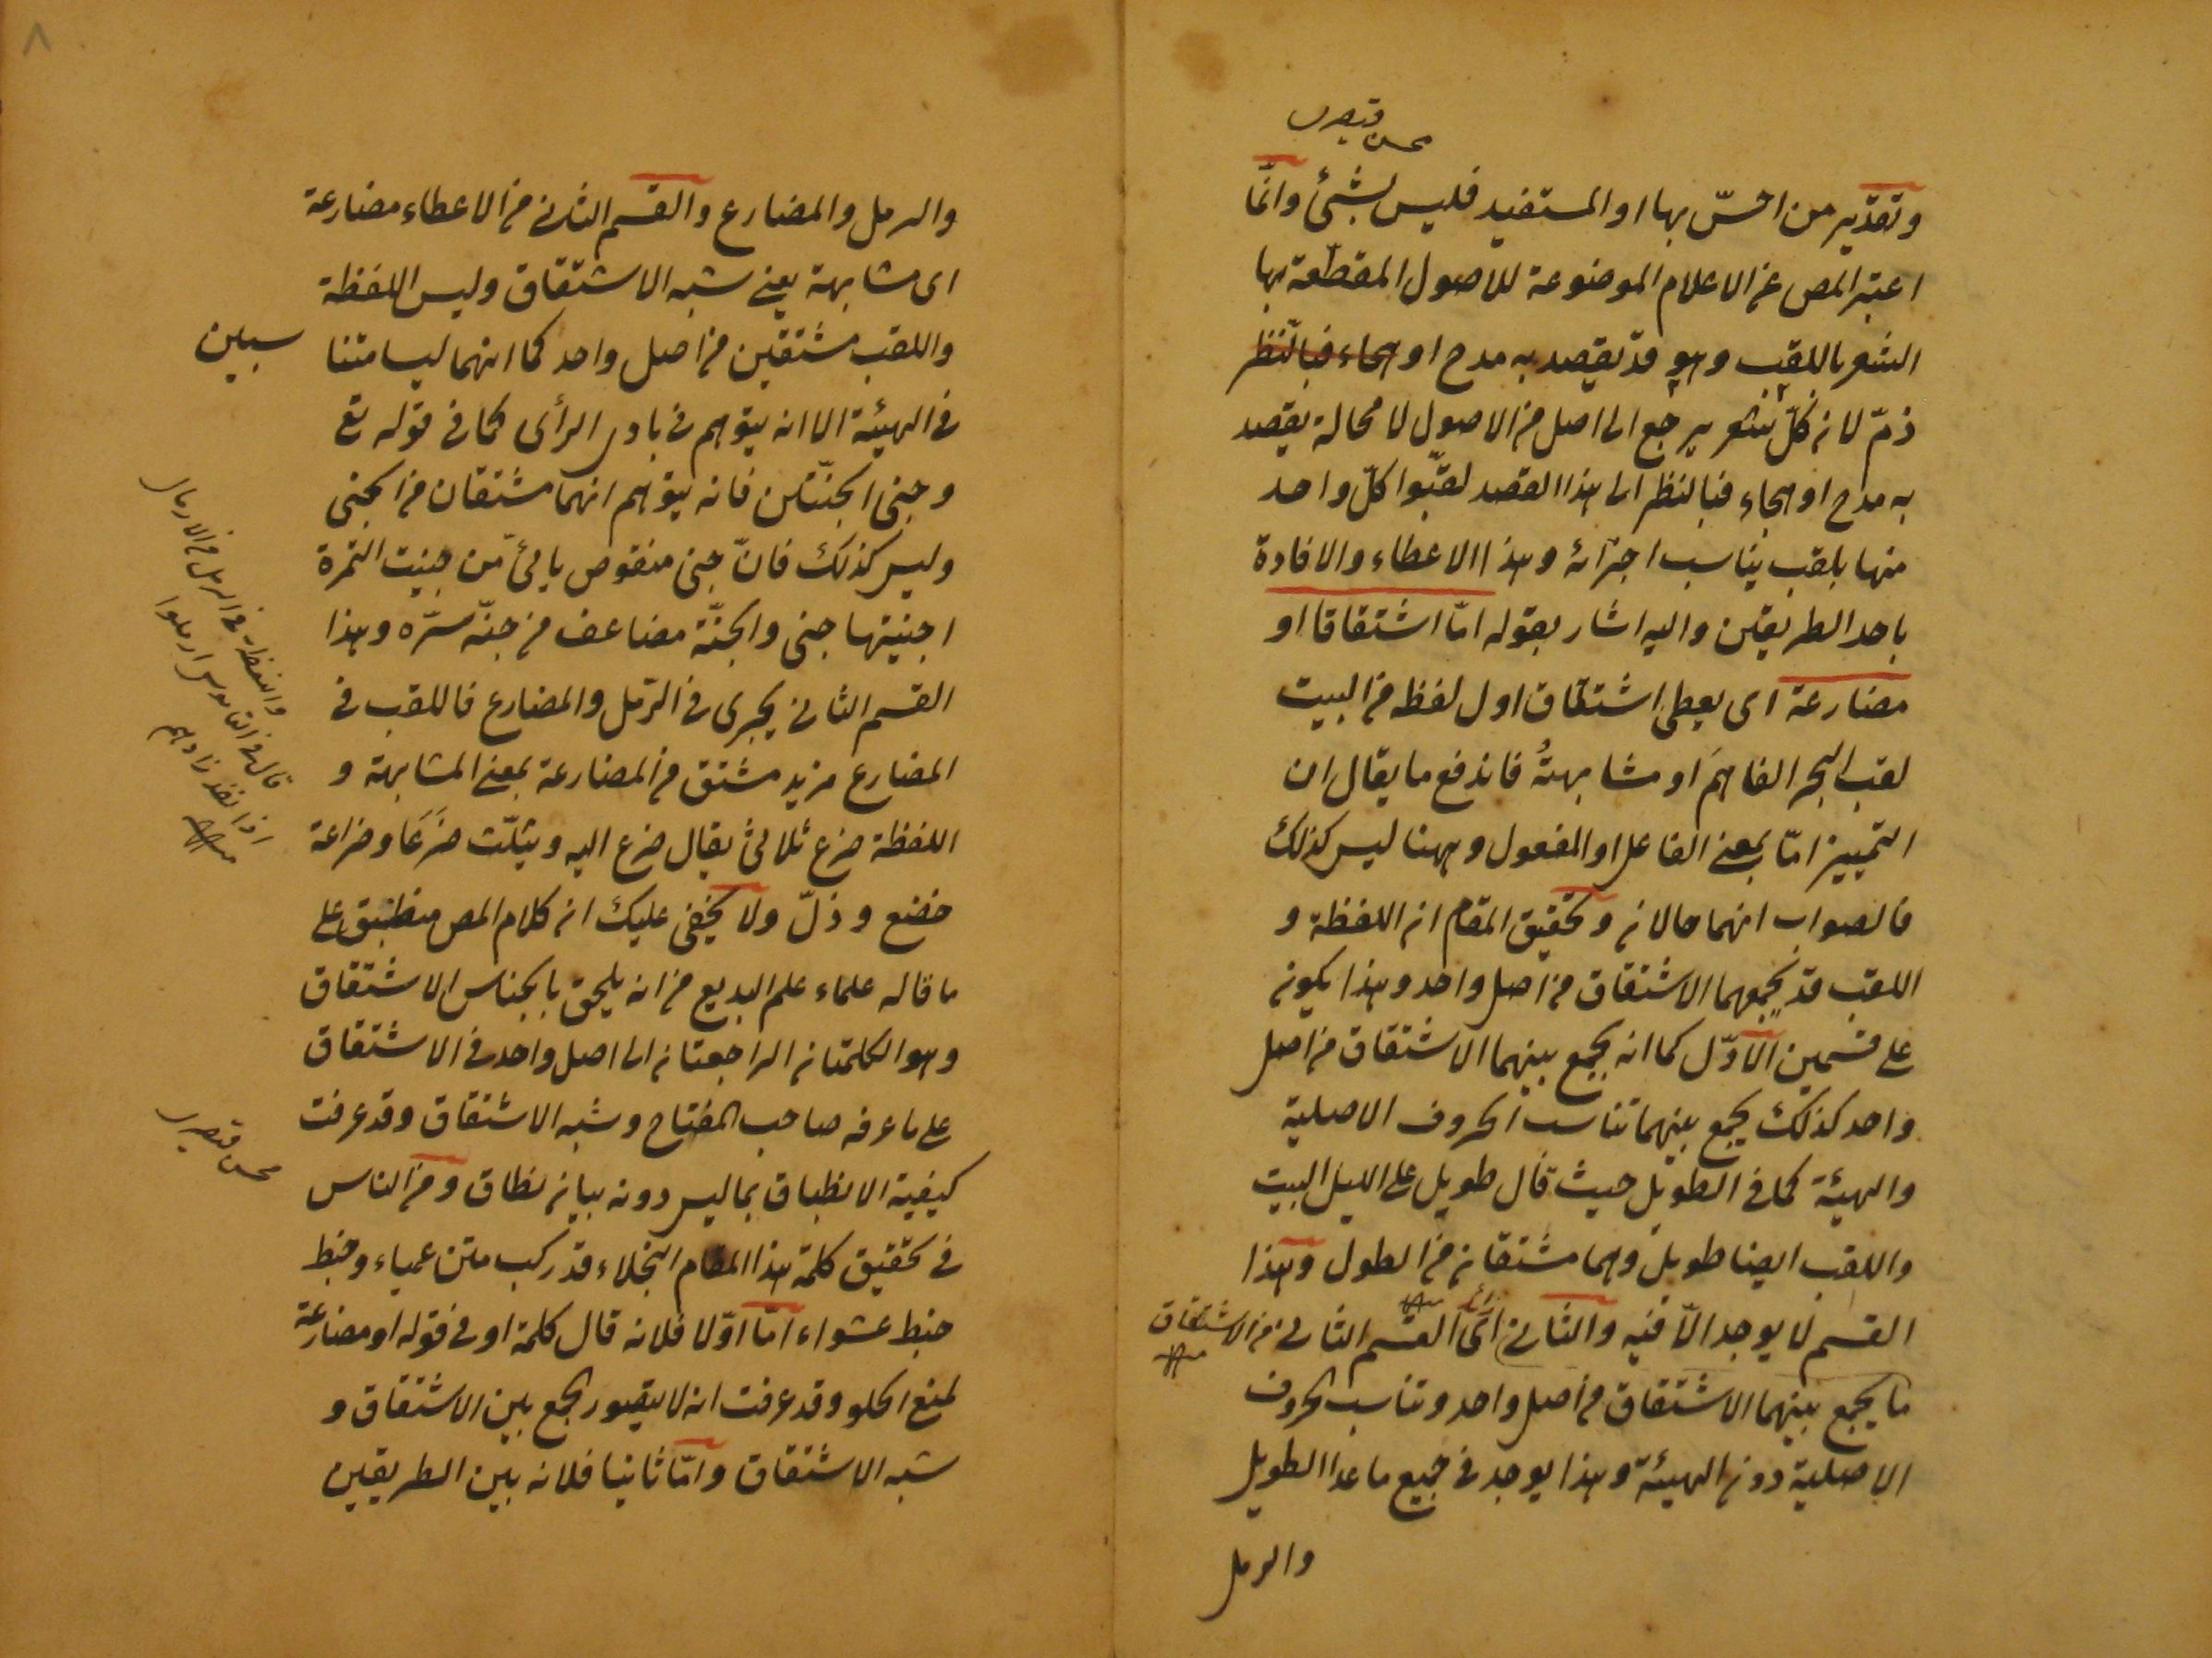 محسن قيصرى
وتقدير من احسّ بها او المستفيد فليس بشئ وانّما
اعتبر المص عن الاعلام الموضوعة للاصول المقطّعة بها
الشعر باللقب وهو قد يقصد به مدح او هجاء فبالنظر
ذمّ لان كلّ شعر يرجع الى اصل من الاصول لا محالة يقصد
به مدح او هجاء فبالنظر الى هذا القصد لقّبوا كلّ واحد
منها بلقب يناسب اجزائه وهذا الاعطاء والافادة
باحد الطريقين واليه اشار بقوله امّا اشتقاقا او
مضارعة اى يعطى اشتقاق اول لفظه من البيت
لقب البحر الفاهم او مشابهتُه فاندفع ما يقال ان
التمييز امّا بمعنى الفاعل او المفعول وههنا ليس كذلك
فالصواب انهما حالان وتحقيق المقام ان اللفظة و
اللقب قد يجمعهما الاشتقاق من اصل واحد وهذا يكون
على قسمين الاوّل كما انه يجمع بينهما الاشتقاق من اصل
واحد كذلك يجمع بينهما تناسب الحروف الاصلية
والهيئة كما فى الطويل حيث قال طويل على الليل البيت
واللقب ايضا طويل وهما مشتقان من الطول وهذا
القسم لا يوجد الّا فيه والثانى اى القسم الثانى من الاشتقاق
ما يجمع بينهما الاشتقاق من اصل واحد وتناسب الحروف
الاصلية دون الهيئة وهذا يوجد فى جميع ما عدا الطويل
والرمل
٨
والرمل والمضارع والقسم الثانى من الاعطاء مضارعة
اى مشابهة يعنى شبه الاشتقاق وليس اللفظة
واللقب مشتقين من اصل واحد كما انهما ليسا متنا
سبين
فى الهيئة الا انه يتوهم فى بادى الرأى كما فى قوله تع
وجنى الجنّتين فانه يتوهم انهما مشتقان من الجنى
وليس كذلك فانّ جنى منقوص يائىّ من جنيت الثمرة
اجنيتها جنى والجنّة مضاعف من جنّه سرّه وهذا
القسم الثانى يجرى فى الرّمل والمضارع فاللقب فى
المضارع مزيد مشتق من المضارعة بمعنى المشابهة و
اللفظة ضرع ثلاثىّ يقال ضرع اليه ويثلّث ضَرَعًا وضراعة
خضع وذلّ ولا يخفى عليك ان كلام المص منطبق على
ما قاله علماء علم البديع من انه يلحق بالجناس الاشتقاق
وهو الكلمتان الراجعتان الى اصل واحد فى الاشتقاق
على ما عرفه صاحب المفتاح وشبه الاشتقاق وقد عرفت
كيفية الانطباق بما ليس دونه بيان نطاق ومن الناس
فى تحقيق كلمة هذا المقام النجلاء قد ركب متن عمياء وخبط
خبط عشواء امّا اوّلا فلانه قال كلمة او فى قوله او مضارعة
لمنع الخلو وقد عرفت انه لا يتصور الجمع بين الاشتقاق و
شبه الاشتقاق وامّا ثانيا فلانه بين الطريقين
واللفظة فى الرمل من الارمال
قال فى القاموس ارملوا
اذا نفد زادهم
محسن قيصرى